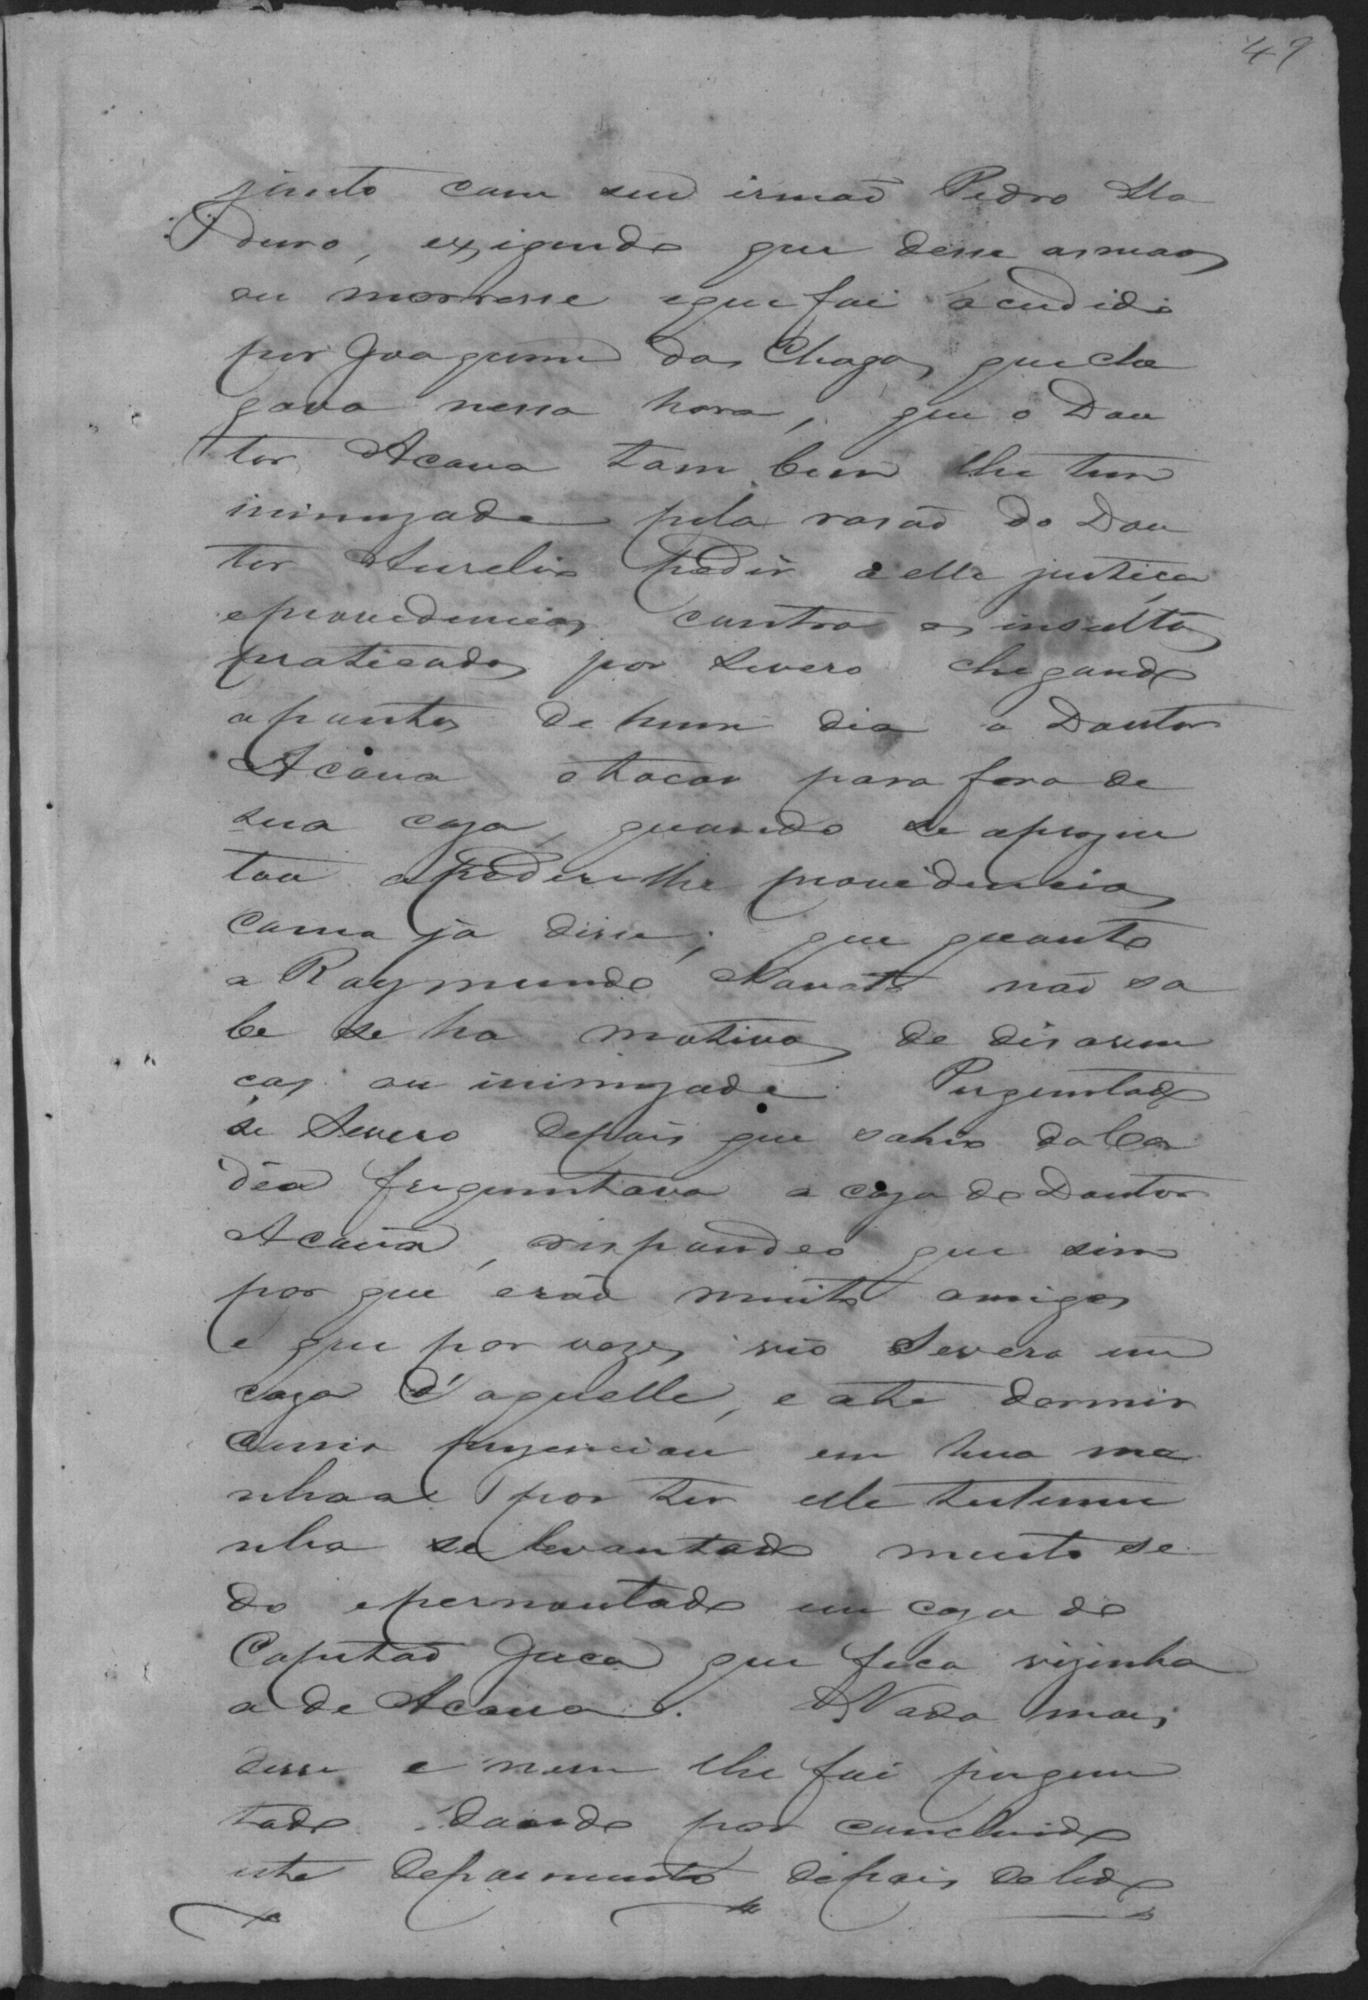 49
junto com seu irmaõ Pedro Ma
duro, exigindo que desse as maõs
ou morresse e que foi acudido
por Joaquim das Chagas que che
gava nessa hora, que o Dou
tor Acaua tam bem lhe tem
inimizade pela rasaõ do Dou
tor Aurelio pedir a elle justiça
e providencias contra os insultos
praticados por Severo chegando
a pontos de hum dia o Doutor
Acaua o tocar para fora de
sua caza, quando se aprezen
tou a pedir lhe providencias
como ja disse; que quanto
a Raymundo Nonato naõ sa
be se ha motivos de disaven
ças ou inimizade. Perguntado
se Severo depois que sahio da Ca
dêa frequentava a caza do Doutor
Acaua, respondeo que sim
por que eraõ muito amigos
e que por vezes vio Severo em
caza d'aquelle, e athe dormir
como prezenciou em hua ma
nhaã por ter elle testemu
nha se levantado muito se
do e pernoutado em caza do
Capitaõ Juca que fica vizinha
a de Acaua. Nada mais
disse e nem lhe foi pergun
tado dando por concluido
este depoimento depois de lido